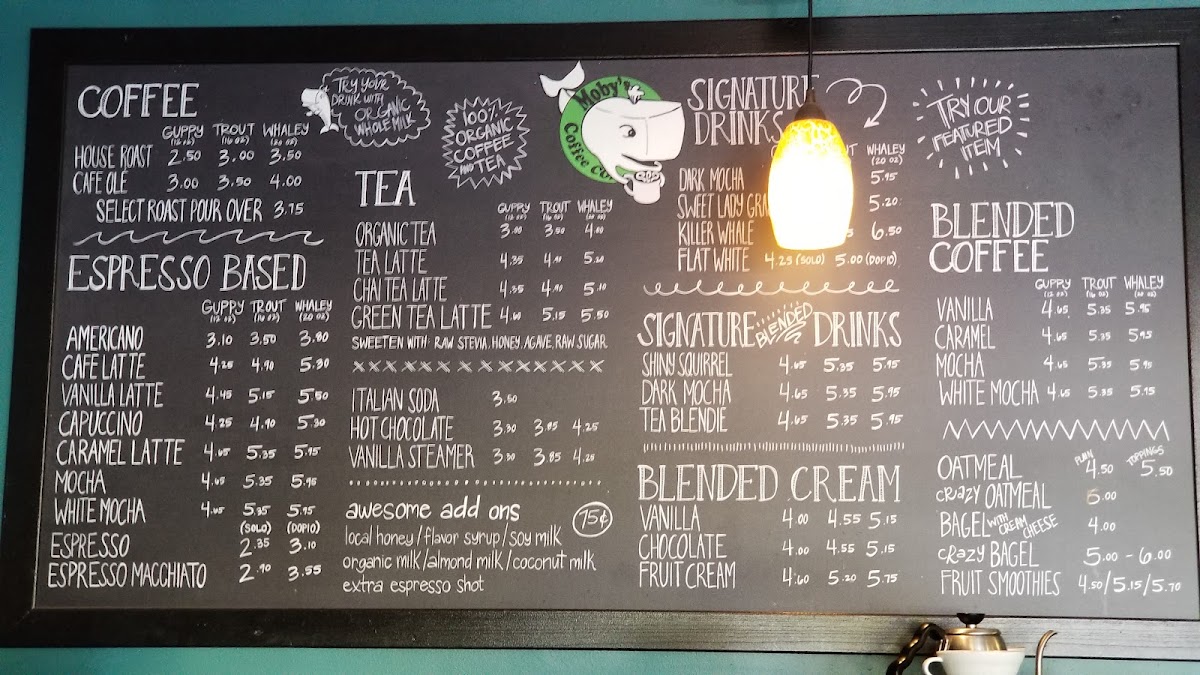 COFFEE
GUPPY TROUT WHALEY
(12 OZ) (16 OZ) (20 OZ)
HOUSE ROAST 2.50 3.00 3.50
CAFE OLE 3.00 3.50 4.00
SELECT ROAST POUR OVER 3.75
ESPRESSO BASED
GUPPY TROUT WHALEY
(12 OZ) (16 OZ) (20 OZ)
AMERICANO 3.10 3.50 3.80
CAFE LATTE 4.25 4.90 5.30
VANILLA LATTE 4.45 5.15 5.50
CAPUCCINO 4.25 4.90 5.30
CARAMEL LATTE 4.65 5.35 5.95
MOCHA 4.65 5.35 5.95
WHITE MOCHA 4.65 5.35 5.95
(SOLO) (DOPIO)
ESPRESSO 2.35 3.10
ESPRESSO MACCHIATO 2.90 3.55
TRY YOUR
DRINK WITH
ORGANIC
WHOLE MILK
100%
ORGANIC
COFFEE
AND TEA
TEA
GUPPY TROUT WHALEY
(12 OZ) (16 OZ) (20 OZ)
ORGANIC TEA 3.00 3.50 4.00
TEA LATTE 4.35
CHAI TEA LATTE 4.35 4.90 5.10
GREEN TEA LATTE 4.60 5.15 5.50
SWEETEN WITH: RAW STEVIA, HONEY, AGAVE, RAW SUGAR
ITALIAN SODA 3.50
HOT CHOCOLATE 3.30 3.85 4.25
VANILLA STEAMER 3.30 3.85 4.25
awesome add ons
75¢
local honey/flavor syrup/soy milk
organic milk/almond milk/coconut milk
extra espresso shot
Moby's
Coffee Co
SIGNATURE
DRINKS
WHALEY
(20 OZ)
DARK MOCHA 5.95
SWEET LADY 5.20
KILLER WHALE 6.50
FLAT WHITE 4.25 (SOLO) 5.00 (DOPIO)
SIGNATURE BLENDED DRINKS
SHINY SQUIRREL 4.65 5.35 5.95
DARK MOCHA 4.65 5.35 5.95
TEA BLENDIE 4.65 5.35 5.95
BLENDED CREAM
VANILLA 4.00 4.55 5.15
CHOCOLATE 4.00 4.55 5.15
FRUIT CREAM 4.60 5.20 5.75
TRY OUR
FEATURED
ITEM
BLENDED
COFFEE
GUPPY TROUT WHALEY
(12 OZ) (16 OZ) (20 OZ)
VANILLA 4.65 5.35 5.95
CARAMEL 4.65 5.35 5.95
MOCHA 4.65 5.35 5.95
WHITE MOCHA 4.65 5.35 5.95
PLAIN TOPPINGS
OATMEAL 4.50 5.50
CRAZY OATMEAL 5.00
BAGEL WITH CREAM CHEESE 4.00
CRAZY BAGEL 5.00 - 6.00
FRUIT SMOOTHIES 4.50/5.15/5.70